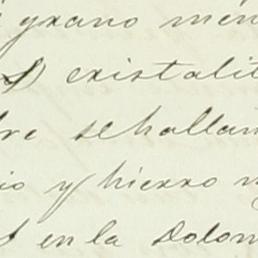 y grano men
existalit
re se hallan
io y hierro m
en la Dolom